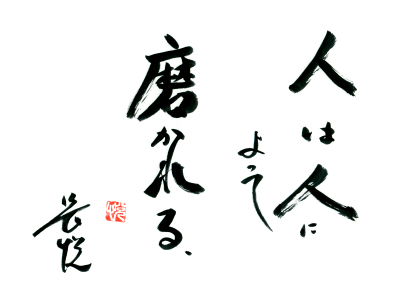 人は人に
よって
磨かれる、
長悦